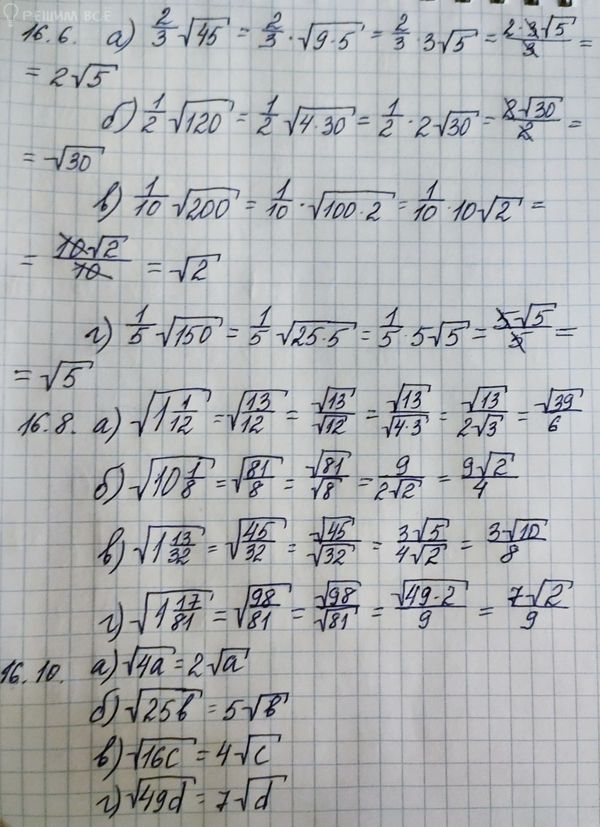 РЕШИМ ВСЁ
16.6. а) 2/3 √45 = 2/3 · √(9·5) = 2/3 · 3√5 = (2·3√5)/3 =
= 2√5
б) 1/2 √120 = 1/2 √(4·30) = 1/2 · 2√30 = (2√30)/2 =
= √30
в) 1/10 √200 = 1/10 · √(100·2) = 1/10 · 10√2 =
= (10√2)/10 = √2
г) 1/5 √150 = 1/5 √(25·5) = 1/5 · 5√5 = (5√5)/5 =
= √5
16.8. а) √(1 1/12) = √(13/12) = √13/√12 = √13/√(4·3) = √13/(2√3) = √39/6
б) √(10 1/8) = √(81/8) = √81/√8 = 9/(2√2) = (9√2)/4
в) √(1 13/32) = √(45/32) = √45/√32 = (3√5)/(4√2) = (3√10)/8
г) √(1 17/81) = √(98/81) = √98/√81 = √(49·2)/9 = (7√2)/9
16.10. а) √(4a) = 2√a
б) √(25b) = 5√b
в) √(16c) = 4√c
г) √(49d) = 7√d